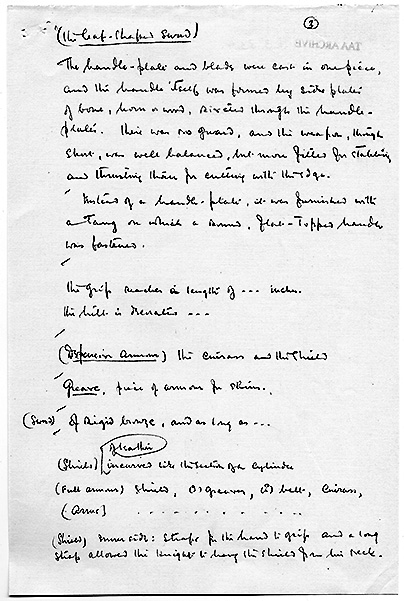 (3)
TAA ARCHIVE
"(The leaf-shaped Sword)
The handle-plate and blade were cast in one piece,
and the handle itself was formed by side plates
of bone, horn or wood, riveted through the handle-
plate. There was no guard, and the weapon, though
short, was well balanced, but more fitted for stabbing
and thrusting than for cutting with the edge.
Instead of a handle-plate, it was furnished with
a Tang on which a round, flat-topped handle
was fastened.
The grip reaches a length of --- inches.
The hilt is decorated ---
(Defensive armour) The Cuirass and the Shield
Greave, piece of armour for shins.
(Sword) Of Rigid bronze, and as long as ---
of leather
(Shield) incurved like the sector of a cylinder
(Full armour) Shield, greaves, belt, Cuirass,
(Arms] . . . . . . . . . .
(Shield) Inner side: Straps for the hand to grip and a long
strap allowed the Knight to hang the shield from his neck.